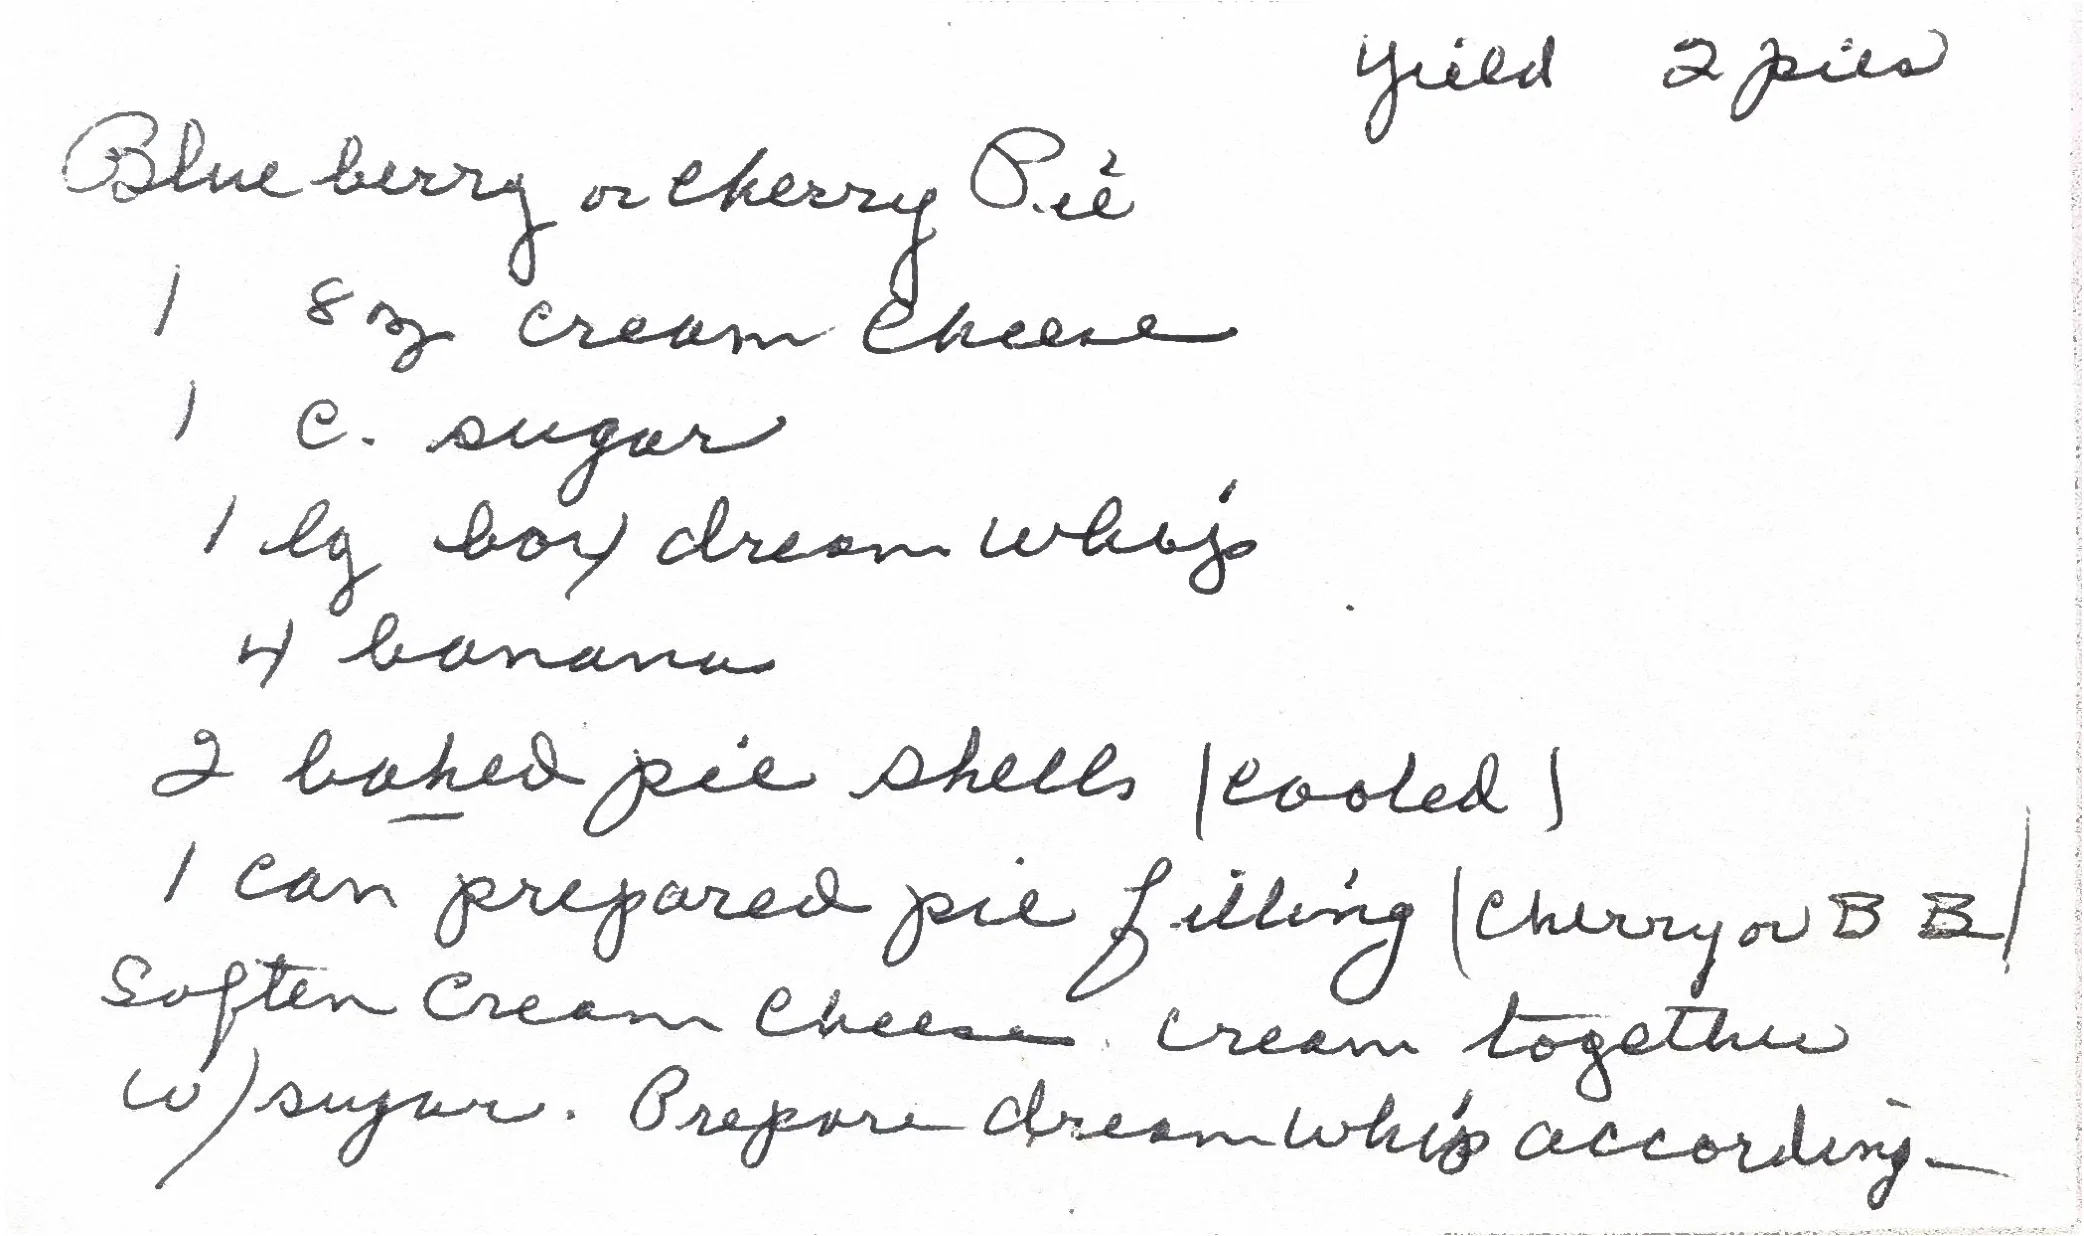 Yield 2 pies
Blueberry or Cherry Pie
1 8 oz cream cheese
1 c. sugar
1 lg box dream whip
4 banana
2 baked pie shells (cooled)
1 can prepared pie filling (Cherry or B B)
Soften Cream Cheese. cream together
w/sugar. Prepare dream whip according